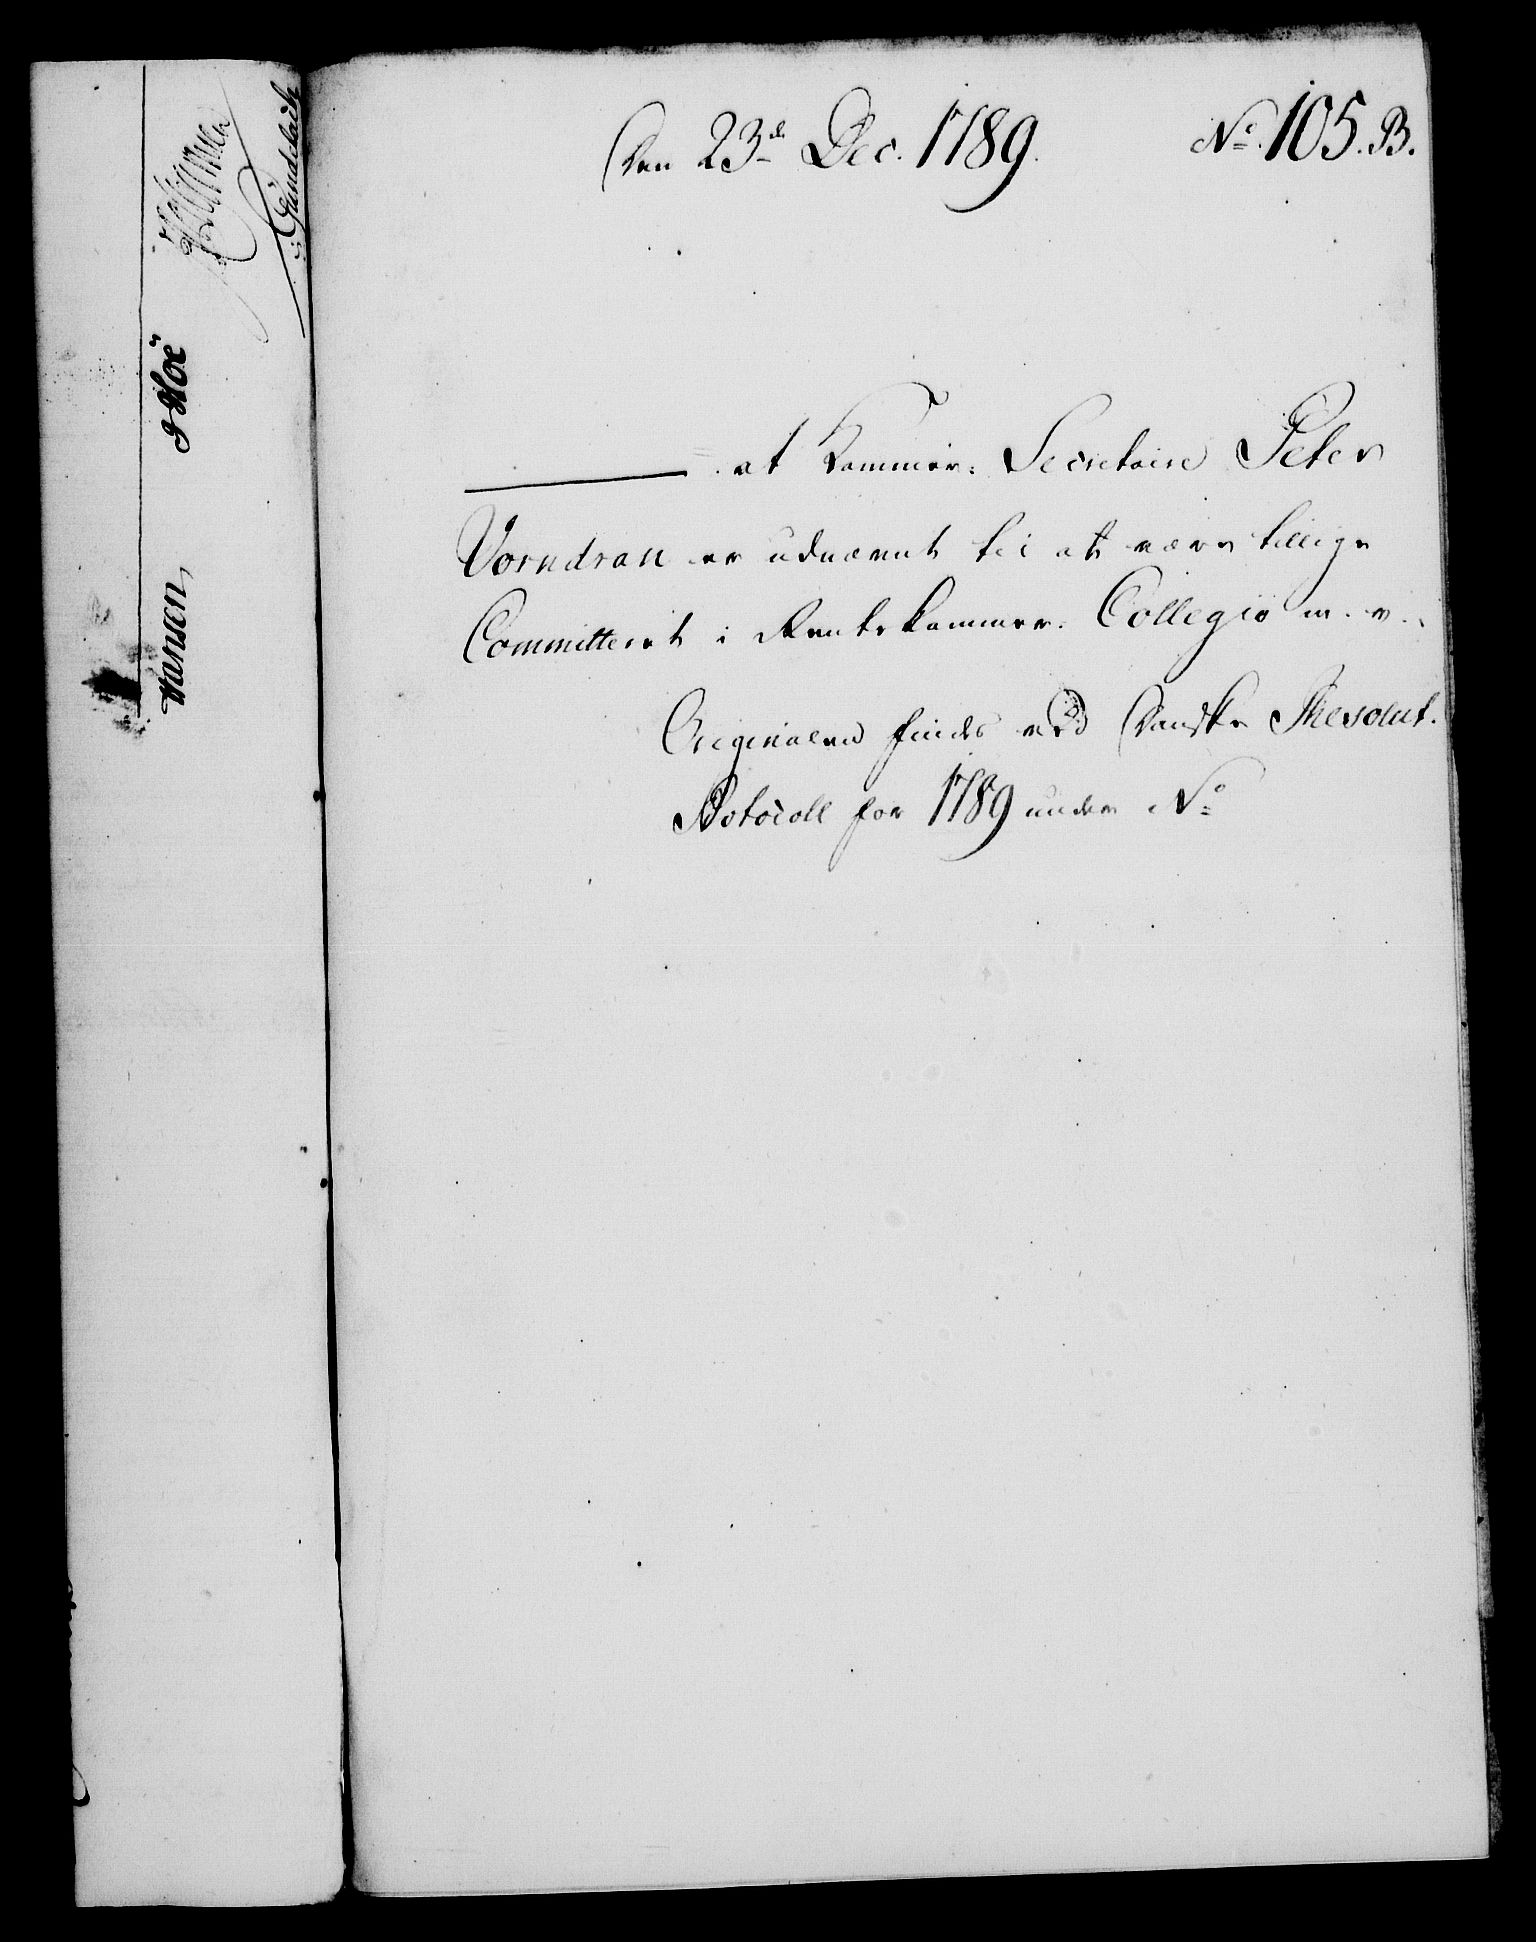 Den 23de Dec. 1789. No. 105. B.
at Kammer: Secretaire Peter
Vorndran er udnævnt til at være tillige
Committeret i Rentekammer: Collegio m. v.
Originalen findes ved Danske Resolut.
Protocoll for 1789 under No
Gundelach
J Höe
Hansen